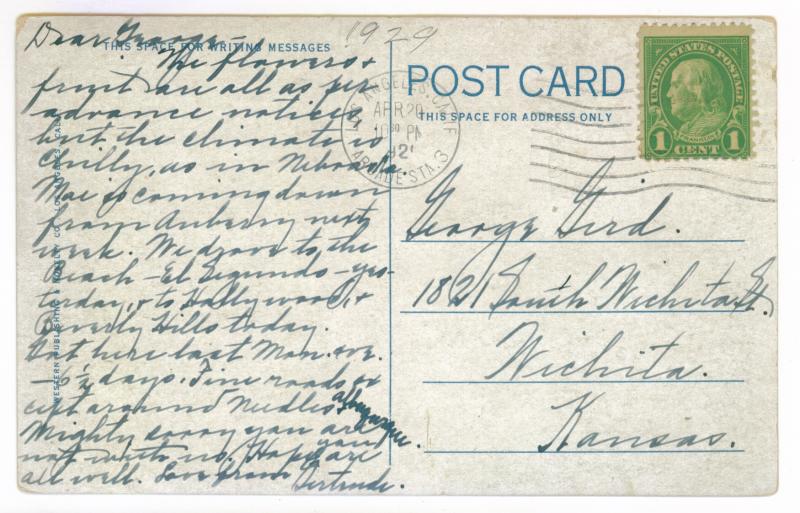 1929
Dear George -
THIS SPACE FOR WRITING MESSAGES
The flowers &
fruit are all as per
advance notices
but the climate is
chilly, as in Nebraska.
Mae is coming down
from Auberry next
week. We drove to the
Beach - El Segundo - yes-
terday, & to Hollywood, &
Beverly Hills today.
Got here last Mon. eve.
- 5½ days. Fine roads ex
cept around Needles & Albuquerque.
Mighty sorry you are
not with us. Hope you are
all well. Love from
Gertrude.
WESTERN PUBLISHING & NOVELTY CO., LOS ANGELES, CAL.
POST CARD
THIS SPACE FOR ADDRESS ONLY
LOS ANGELES, CALIF.
APR 20
10 30 PM
192
ARCADE STA. 3
UNITED STATES POSTAGE
FRANKLIN
1 CENT 1
George Gird.
1821 South Wichita St.
Wichita.
Kansas.